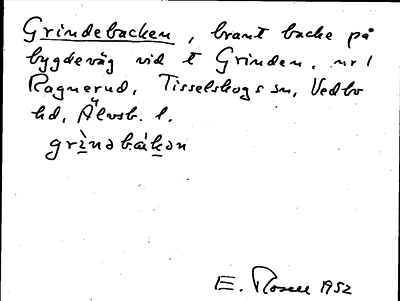 Grindebacken, brant backe på
bygdeväg vid t Grinden, nr 1
Ragnerud, Tisselskogs sn, Vedbo
hd, Älvsb. l.
grìnəbàkən
E. Rosell 1952